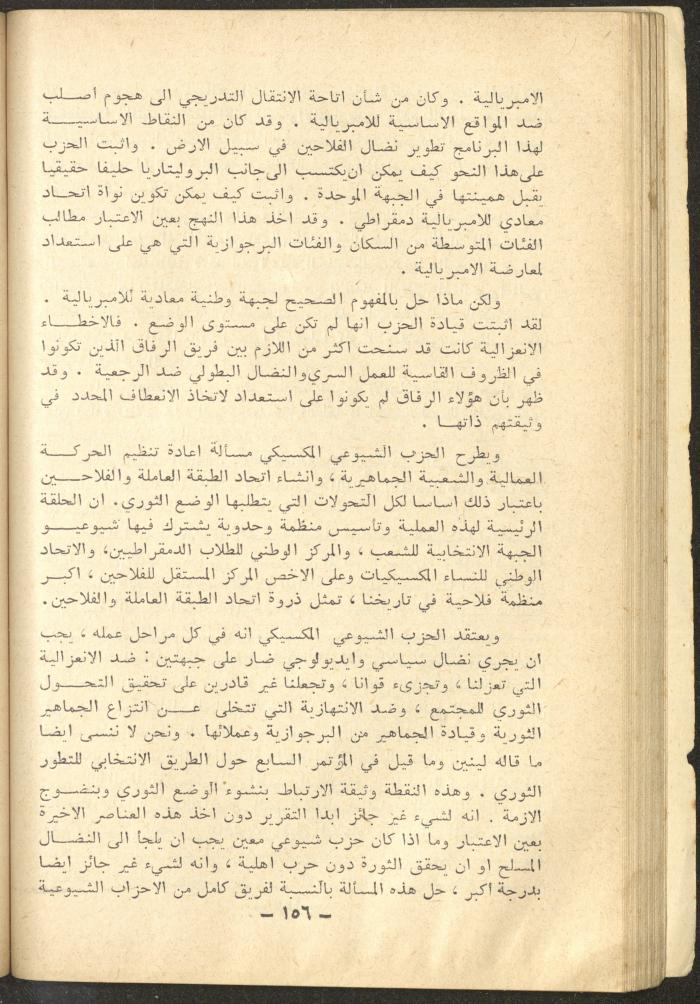 الامبريالية . وكان من شأن اتاحة الانتقال التدريجي الى هجوم أصلب
ضد المواقع الاساسية للامبريالية . وقد كان من النقاط الاساسية
لهذا البرنامج تطوير نضال الفلاحين في سبيل الارض . واثبت الحزب
على هذا النحو كيف يمكن ان يكتسب الى جانب البروليتاريا حليفا حقيقيا
يقبل همينتها في الجبهة الموحدة . واثبت كيف يمكن تكوين نواة اتحاد
معادي للامبريالية دمقراطي . وقد اخذ هذا النهج بعين الاعتبار مطالب
الفئات المتوسطة من السكان والفئات البرجوازية التي هي على استعداد
لمعارضة الامبريالية .
ولكن ماذا حل بالمفهوم الصحيح لجبهة وطنية معادية للامبريالية .
لقد اثبتت قيادة الحزب انها لم تكن على مستوى الوضع . فالاخطاء
الانعزالية كانت قد سنحت اكثر من اللازم بين فريق الرفاق الذين تكونوا
في الظروف القاسية للعمل السري والنضال البطولي ضد الرجعية . وقد
ظهر بأن هؤلاء الرفاق لم يكونوا على استعداد لاتخاذ الانعطاف المحدد في
وثيقتهم ذاتها .
ويطرح الحزب الشيوعي المكسيكي مسألة اعادة تنظيم الحركة
العمالية والشعبية الجماهيرية ، وانشاء اتحاد الطبقة العاملة والفلاحين
باعتبار ذلك اساسا لكل التحولات التي يتطلبها الوضع الثوري. ان الحلقة
الرئيسية لهذه العملية وتأسيس منظمة وحدوية يشترك فيها شيوعيو
الجبهة الانتخابية للشعب ، والمركز الوطني للطلاب الدمقراطيين، والاتحاد
الوطني للنساء المكسيكيات وعلى الاخص المركز المستقل للفلاحين ، اكبر
منظمة فلاحية في تاريخنا ، تمثل ذروة اتحاد الطبقة العاملة والفلاحين.
ويعتقد الحزب الشيوعي المكسيكي انه في كل مراحل عمله ، يجب
ان يجري نضال سياسي وايديولوجي ضار على جبهتين : ضد الانعزالية
التي تعزلنا ، وتجزىء قوانا ، وتجعلنا غير قادرين على تحقيق التحول
الثوري للمجتمع ، وضد الانتهازية التي تتخلى عن انتزاع الجماهير
الثورية وقيادة الجماهير من البرجوازية وعملائها . ونحن لا ننسى ايضا
ما قاله لينين وما قيل في المؤتمر السابع حول الطريق الانتخابي للتطور
الثوري . وهذه النقطة وثيقة الارتباط بنشوء الوضع الثوري وبنضوج
الازمة . انه لشيء غير جائز ابدا التقرير دون اخذ هذه العناصر الاخيرة
بعين الاعتبار وما اذا كان حزب شيوعي معين يجب ان يلجأ الى النضال
المسلح او ان يحقق الثورة دون حرب اهلية ، وانه لشيء غير جائز ايضا
بدرجة اكبر ، حل هذه المسألة بالنسبة لفريق كامل من الاحزاب الشيوعية
– ١٥٦ –